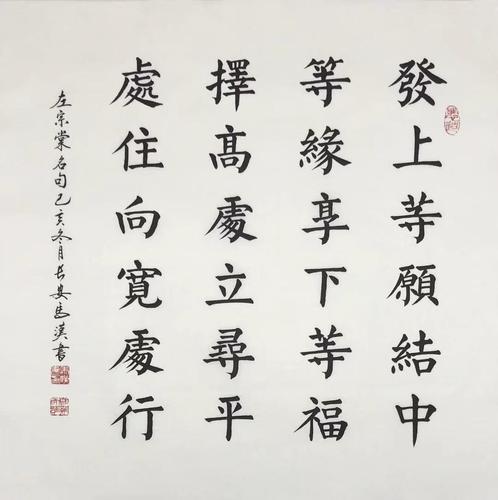 發上等願結中
等緣享下等福
擇高處立尋平
處住向寬處行
左宗棠名句己亥冬月長安馬漢書